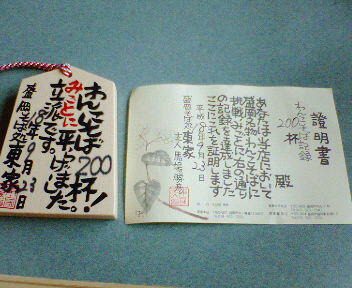 わんこそば200杯!
みごとに平げました。
立派です。
18年9月23日
盛岡そば処東家
證明書
わんこそば記録
200杯
殿
あなたは当店において
盛岡名物わんこそばに
挑戦しみごと右の通り
の記録を達成しました
ここにこれを証明します
平成18年9月23日
盛岡そば処 東家
主人